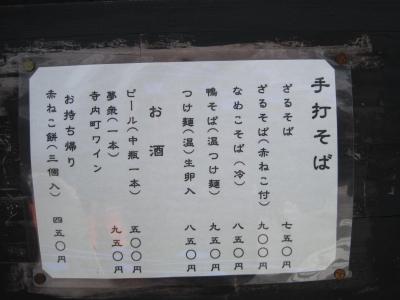 手打そば
ざるそば 七五〇円
ざるそば(赤ねこ付) 九〇〇円
なめこそば(冷) 八五〇円
鴨そば(温つけ麺) 九五〇円
つけ麺(温)生卵入 八五〇円
お酒
ビール(中瓶一本) 五〇〇円
夢衆(一本) 九五〇円
寺内町ワイン
お持ち帰り
赤ねこ餅(三個入) 四五〇円